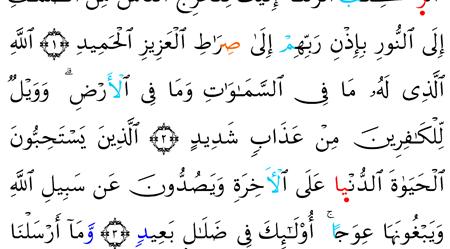 إِلَيْكَ لِتُخْرِجَ ٱلنَّاسَ مِنَ
إِلَى ٱلنُّورِ بِإِذْنِ رَبِّهِمْ إِلَىٰ صِرَٰطِ ٱلْعَزِيزِ ٱلْحَمِيدِ ﴿١﴾ ٱللَّهِ
ٱلَّذِى لَهُۥ مَا فِى ٱلسَّمَٰوَٰتِ وَمَا فِى ٱلْأَرْضِ ۗ وَوَيْلٌ
لِّلْكَٰفِرِينَ مِنْ عَذَابٍ شَدِيدٍ ﴿٢﴾ ٱلَّذِينَ يَسْتَحِبُّونَ
ٱلْحَيَوٰةَ ٱلدُّنْيا عَلَى ٱلْأَخِرَةِ وَيَصُدُّونَ عَن سَبِيلِ ٱللَّهِ
وَيَبْغُونَهَا عِوَجًا ۚ أُو۟لَٰٓئِكَ فِى ضَلَٰلٍۭ بَعِيدٍ ﴿٣﴾ وَمَآ أَرْسَلْنَا